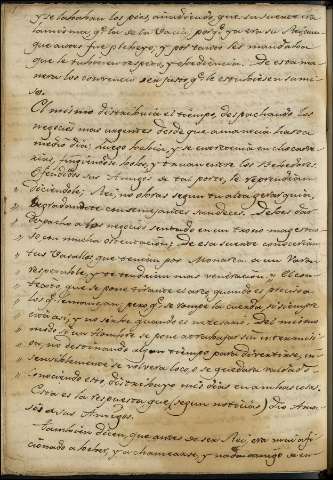 y se lababan los pies, añadiendo, que su suerte era
la misma, qe. la de la Vacia, porqe. ya era su Rey, aun
que antes fue plebeyo, y por tanto les mandaba
que le tubieran respeto, y obediencia. De esta ma
nera los convencio ser justo qe. le estubiesen sumi
sos.
El mismo distribuia el tiempo, despachando los
negocios mas urgentes desde que amanecia hasta
medio dia, luego bebia, y se entretenia en chocarre
rias, fingiendose bobo, y truan entre los Bebedores.
Ofendidos sus Amigos de tal porte, le reprendian
diciendole; Rey, no obras segun tu alta gerarquia,
degradandote con semejantes sandeces. Debes dar
despacho a los negocios sentado en un trono magestuo
so con mucha ostentacion; De esa suerte conocerian
tus Vasallos que tenian por Monarca a un Varon
respetable, y te tendrian mas veneracion, y El con
texto que se pone tirante el arco quando es preciso a
los qe. le manejan, pero qe. se rompe la cuerda, si siempre
esta asi, y no sirve quando es necesario. Del mismo
modo, si un Hombre se pone a trabajar sin intermi
sion, no destinando algun tiempo para divertirse, in
sensiblemente se volvera loco, o se quedara
conociendo esto, distribuyo mis dias en ambas cosas.
Esta es la respuesta que (segun noticias) dio Ama
sis a sus Amigos.
Tambien dicen, que antes de ser Rey, era muy afi
cionado a beber, y a chancearse, y nada amigo de en